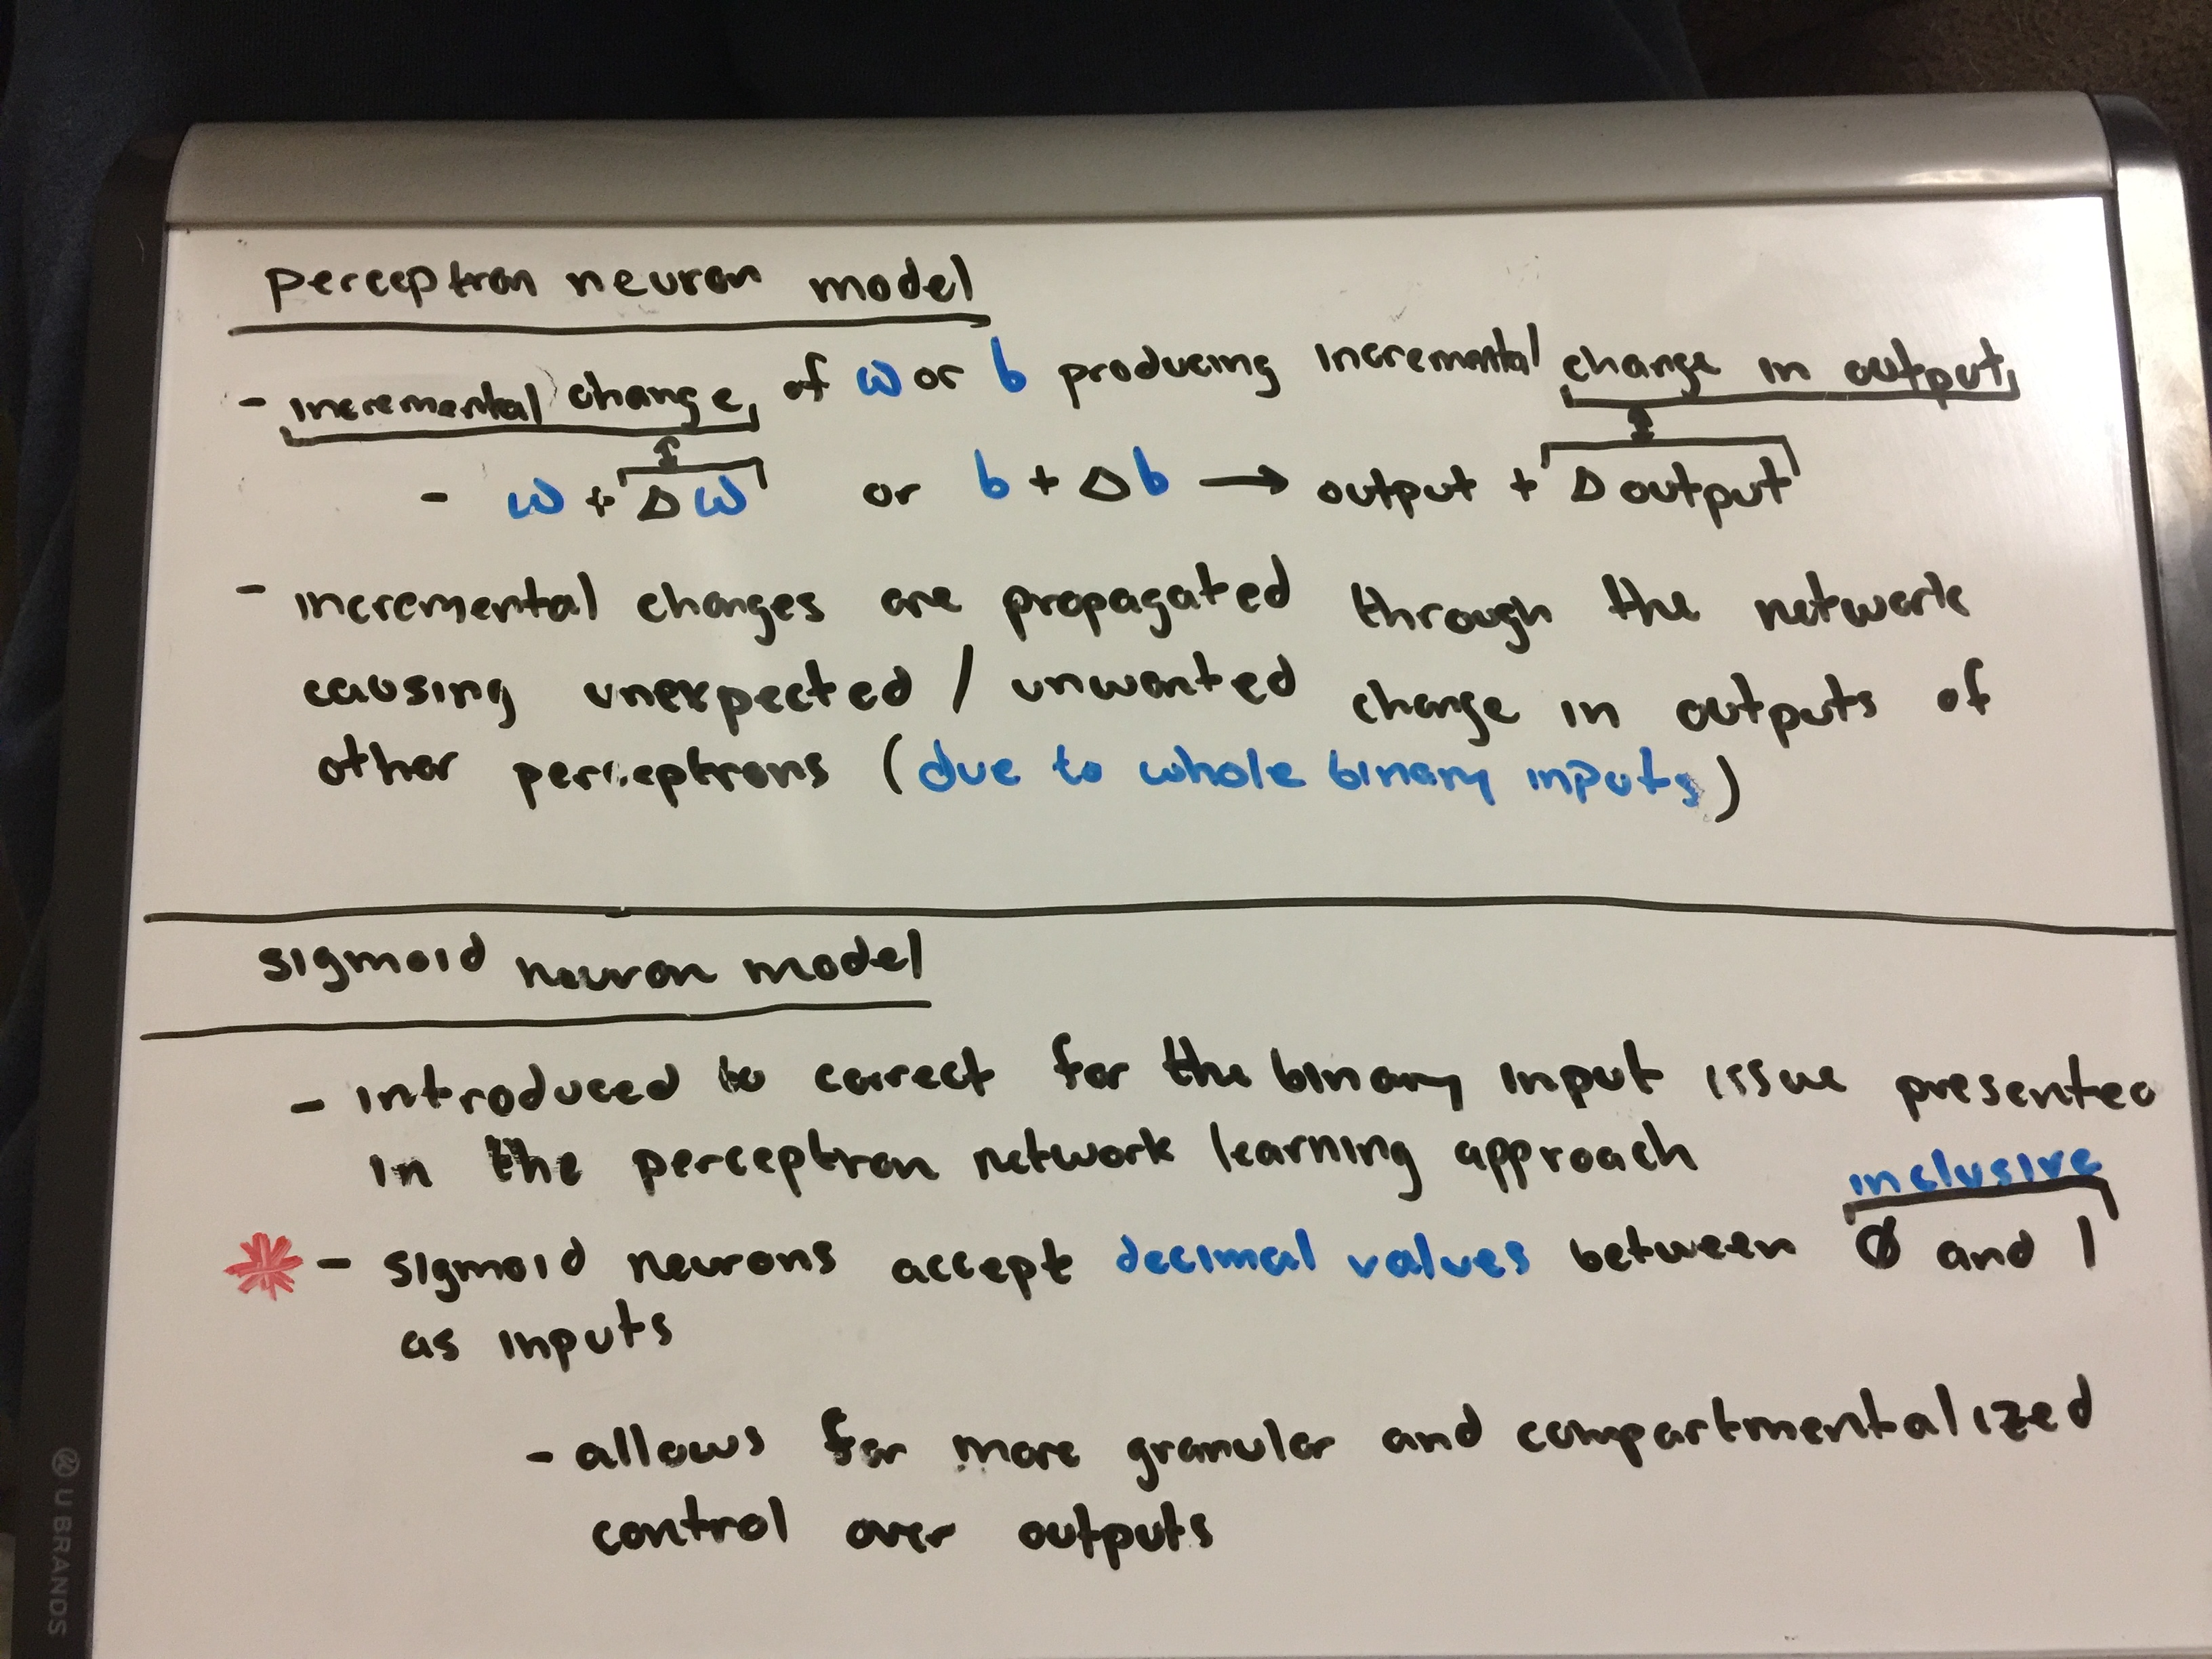 perceptron neuron model
- incremental change of w or b producing incremental change in output
- w + Δw or b + Δb → output + Δoutput
- incremental changes are propagated through the network
causing unexpected / unwanted change in outputs of
other perceptrons (due to whole binary inputs)
sigmoid neuron model
- introduced to correct for the binary input issue presented
in the perceptron network learning approach
inclusive
* - sigmoid neurons accept decimal values between 0 and 1
as inputs
- allows for more granular and compartmentalized
control over outputs
U BRANDS